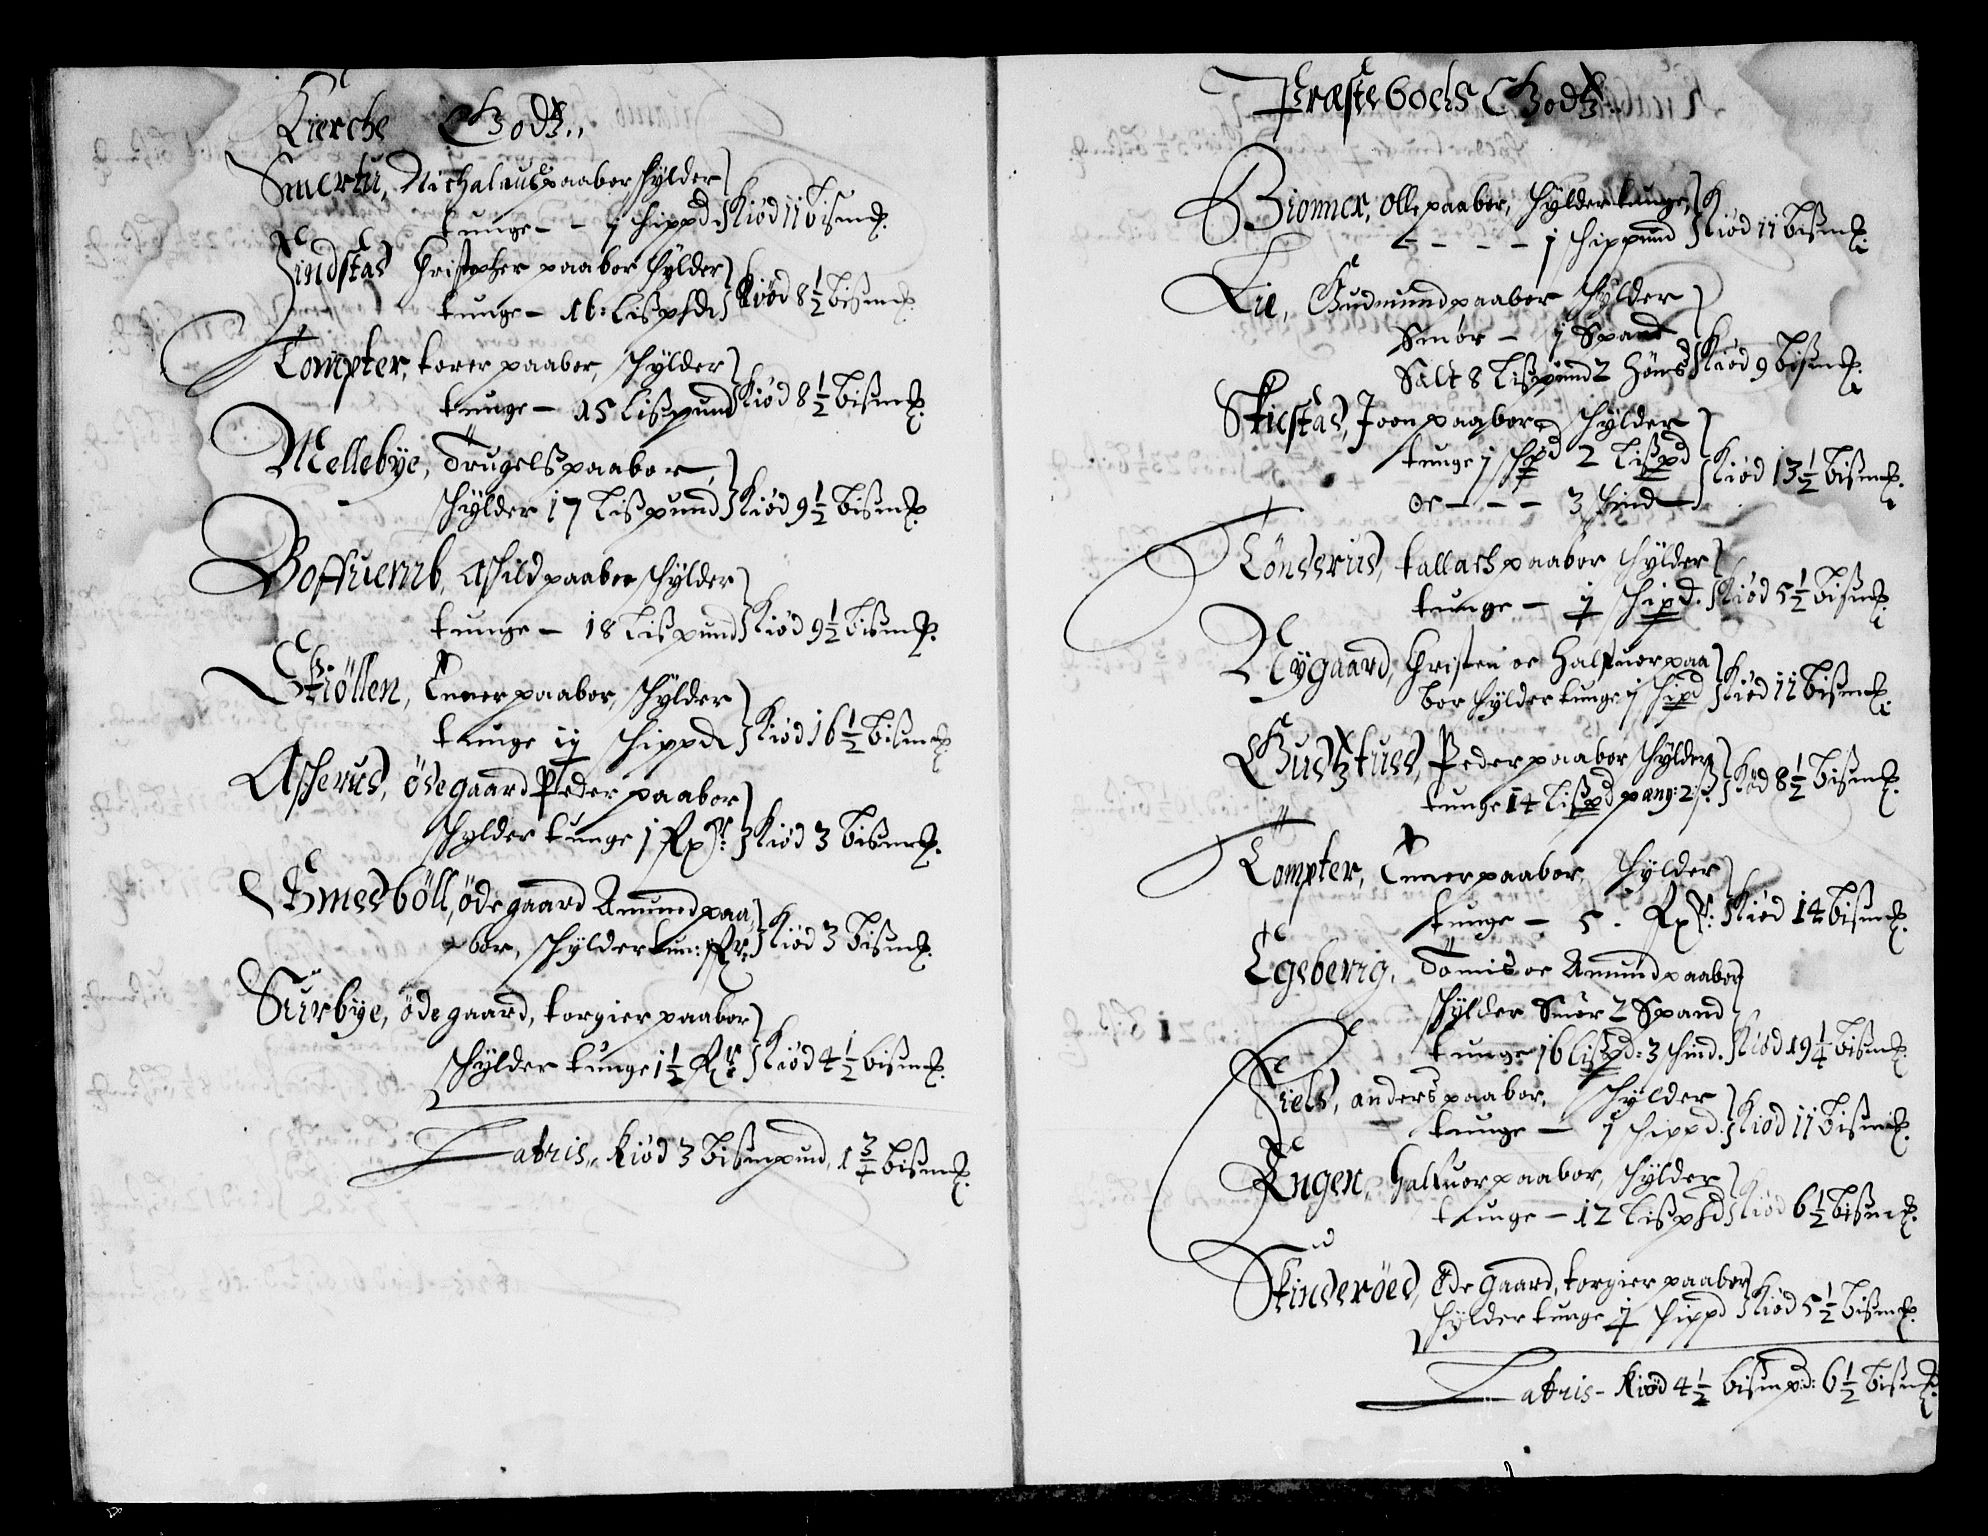 Kierche Godtz.,
Smertu, Nichalaus paaboer schylder
tunge - - j schippd Kiød 11 bism℔.
Findstad Christopher paaboer schylder
tunge - 16: Lißpd Kiød 8½ bism℔.
Tompter, torer paaboer, schylder
tunge - 15 Lißpund Kiød 8½ bism℔.
Mellebÿe, Trugels paaboer,
schÿlder 17 Lißpund Kiød 9½ bism℔.
Boffuemb, Aschild paaboer schÿlder
tunge - 18 Lißpund Kiød 9½ bism℔.
Giöllen, Enner paaboer, schÿlder
tunge ij schippd Kiød 16½ bism℔.
Ascherud, ödegaard Peder paaboer
schylder tunge j Kiød 3 bism℔.
böll, öde gaard Amund paa
boer, schÿlder tun: Kiød 3 bism℔.
Surbÿe, öde gaard, torgier paaboer
schÿlder tunge 1½ Kiød 4½ bism℔.
Latris,, Kiød 3 bismpund, 1¾ bism℔.
Præsteboels Godtz.
Bionner, Olle paaboer, schÿlder tunge,
- - - - j schippund Kiød 11 bism℔.
Lie, Gudmund paaboer schÿlder
Smör - j Spand
Salt 8 Lißpund 2 höns Kiød 9 bism℔.
Skiestad, Joen paaboer schÿlder
tunge j schpd 2 Lißpd
oc - - - 3 skind Kiød 13½ bism℔.
Tönderud, tallach paaboer schÿlder
tunge - j schipd. Kiød 5½ bism℔.
Nÿgaard, Christen oc Halfuor paa
boer schÿlder tunge j schipd Kiød 11 bism℔.
Peder paaboer schÿlder
tunge 14 Lißpd pæng: 2 ß. Kiød 8½ bism℔.
Tompter, Enner paaboer, schÿlder
tunge - 5. Kiød 14 bism℔.
Egeberrig, Tomis oc Amund paaboer
schÿlder Smör 2 Spand
tunge 16 Lißpd: 3 skind. Kiød 19¼ bism℔.
anders paaboer, schÿlder
tunge - j schippd. Kiød 11 bism℔.
Engen, Halfuor paaboer, schÿlder
tunge - 12 Lißpd Kiød 6½ bism℔.
Skinderöed, öde gaard, torgier paaboer
schÿlder tunge j schippd Kiød 5½ bism℔.
Latris - Kiød 4½ bismpd: 6½ bism℔.